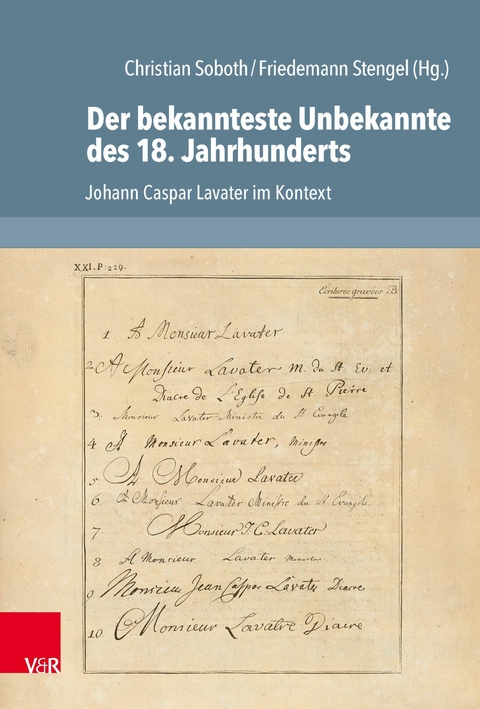 Christian Soboth/Friedemann Stengel (Hg.)
Der bekannteste Unbekannte
des 18. Jahrhunderts
Johann Caspar Lavater im Kontext
XXI. P: 229.
Ecritures gravées B.
1. A Monsieur Lavater
2 A Monsieur Lavater M. du St Ev. et
Diacre de L'Eglise de St Pierre
3. Monsieur Lavater Ministre du St Evangile
4 A Monsieur Lavater, Ministre
5 A Monsieur Lavater
6. A Monsieur Lavater Ministre du St Evangile
7 Monsieur J. C. Lavater
8 A Monsieur Lavater
9 Monsieur Jean Caspar Lavater Diacre
10 Monsieur Lavatre Diacre
V&R